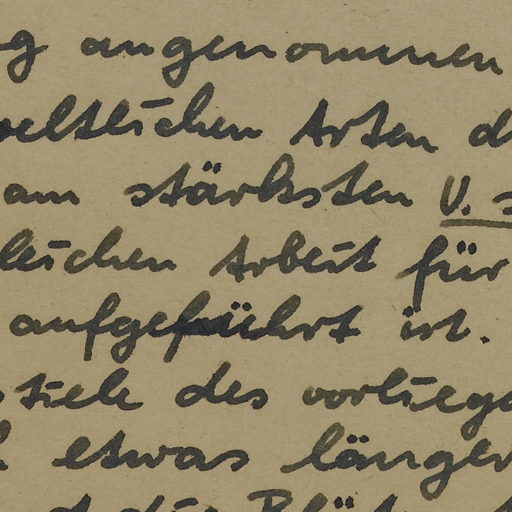 angenommen
weltlichen Arten
am stärksten V.
leichen Arbeit für
aufgeführt ist.
stiele des vorliege
etwas länger